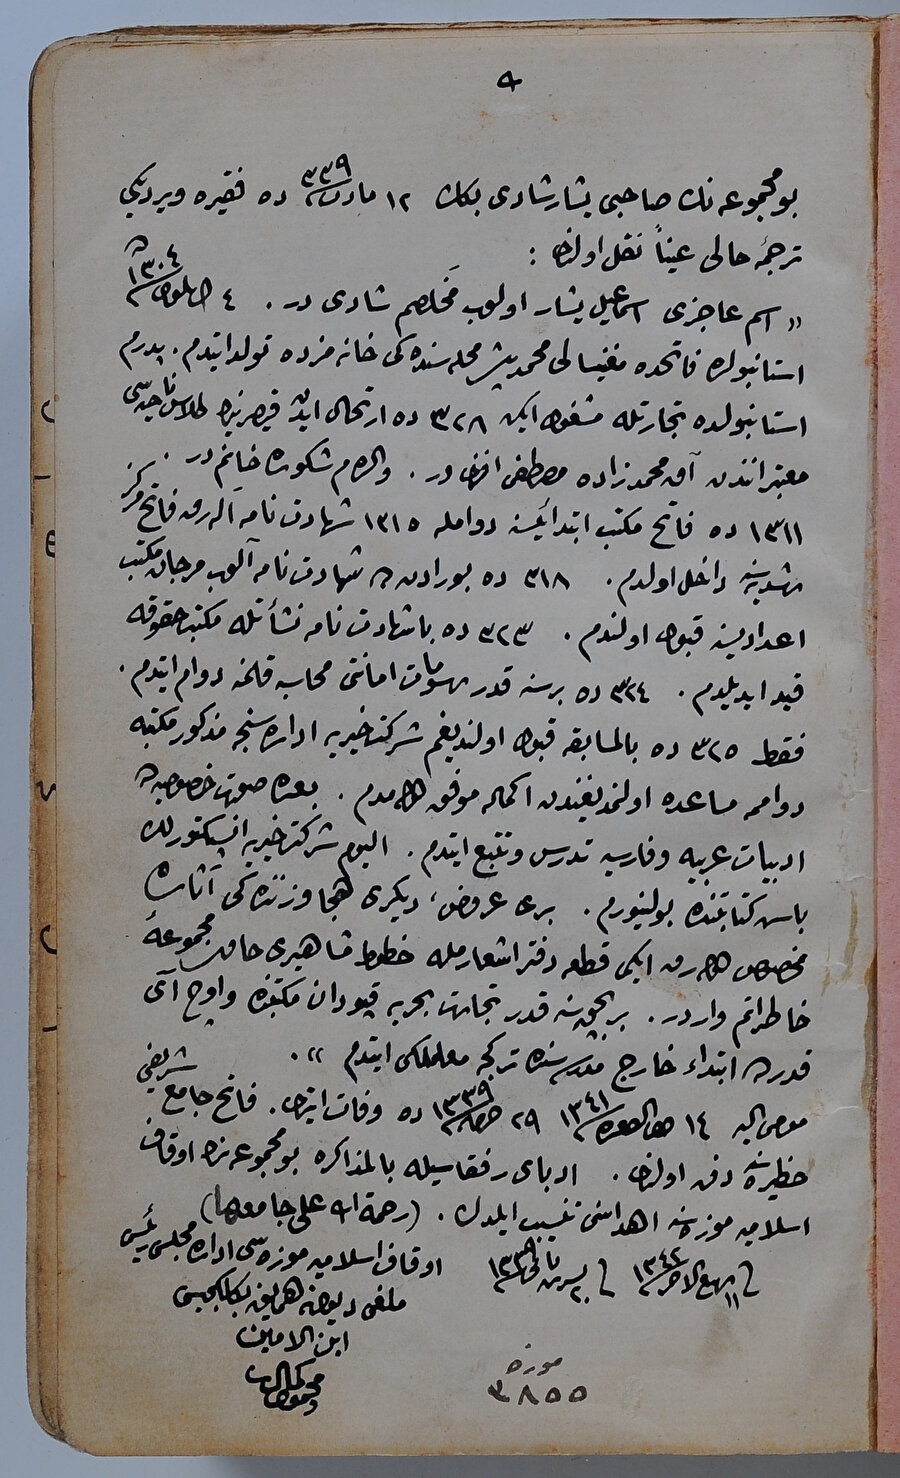 بو مجموعه نك صاحبى يشار شادى بكك ١٢ مارت ٣٣٩ ده فقيره ويرديكى
ترجمۀ حالى عيناً نقل اولندى :
« اسم عاجزى اسماعيل يشار اولوب مخلصم شادى در . ٤ ايلول ١٣٠٤ ده
استانبولده فاتحده مغنيسالى محمد پشر محله سنده كى خانه مزده تولد ايتدم . پدرم
استانبولده تجارتله مشغول ايكن ٣٢٨ ده ارتحال ايدن قيصريه نك طلاس ناحيه سى
معتبراندن آق محمد زاده مصطفى افندى در . والده م شكوره خانم در .
١٣١١ ده فاتح مكتب ابتدائيسنه دوامله ١٣١٥ شهادتنامه آله رق فاتح مركز
رشديه سنه داخل اولدم . ٣١٨ ده بورادن ده شهادتنامه آلوب مرجان مكتب
اعداديسنه قبول اولندم . ٣٢٣ ده با شهادتنامه نشأتله مكتب حقوقه
قيد ايديلدم . ٣٢٤ ده بر سنه قدر رسومات امانتى محاسبه قلمنه دوام ايتدم .
فقط ٣٢٥ ده بالمسابقه قبول اولنديغم شركت خيريه اداره سنجه مذكور مكتبه
دوامه مساعده اولنمديغندن اكماله موفق اوله مدم . بعده صورت خصوصيه ده
ادبيات عربيه و فارسيه تدرس و تتبع ايتدم . اليوم شركت خيريه انسپكتورلك
باش كتابتنده بولنيورم . برى عروض ، ديكرى هجا وزننده كى آثاره
مخصوص اوله رق ايكى قطعه دفتر اشعارمله خطوط مشاهيرى حاوى مجموعۀ
خاطراتم واردر . بر بچق سنه قدر تجارت بحريه قپودان مكتبنده و اوچ آى
قدر ده ابتداء خارج مدرسه سنده تركجه معلملكى ايتدم » .
مومى اليه ١٤ ١٣٤١ ٢٩ ١٣٣٩ ده وفات ايتدى . فاتح جامع شريفى
حظيره سنه دفن اولندى . ادباى رفقاسيله بالمذاكره بو مجموعه نك اوقاف
اسلاميه موزه سنه اهداسنى تنسيب ايلدك . (رحمة الله على جامعها)
١١ ربيع الآخر ١٣٤٢ ٢٠ تشرين ثانى ١٣٣٩ اوقاف اسلاميه موزه سى اداره مجلس رئيسى
ملغى ديوان همايون بكلكجيسى
ابن الامين
محمود كمال
موزه
٣٨٥٥